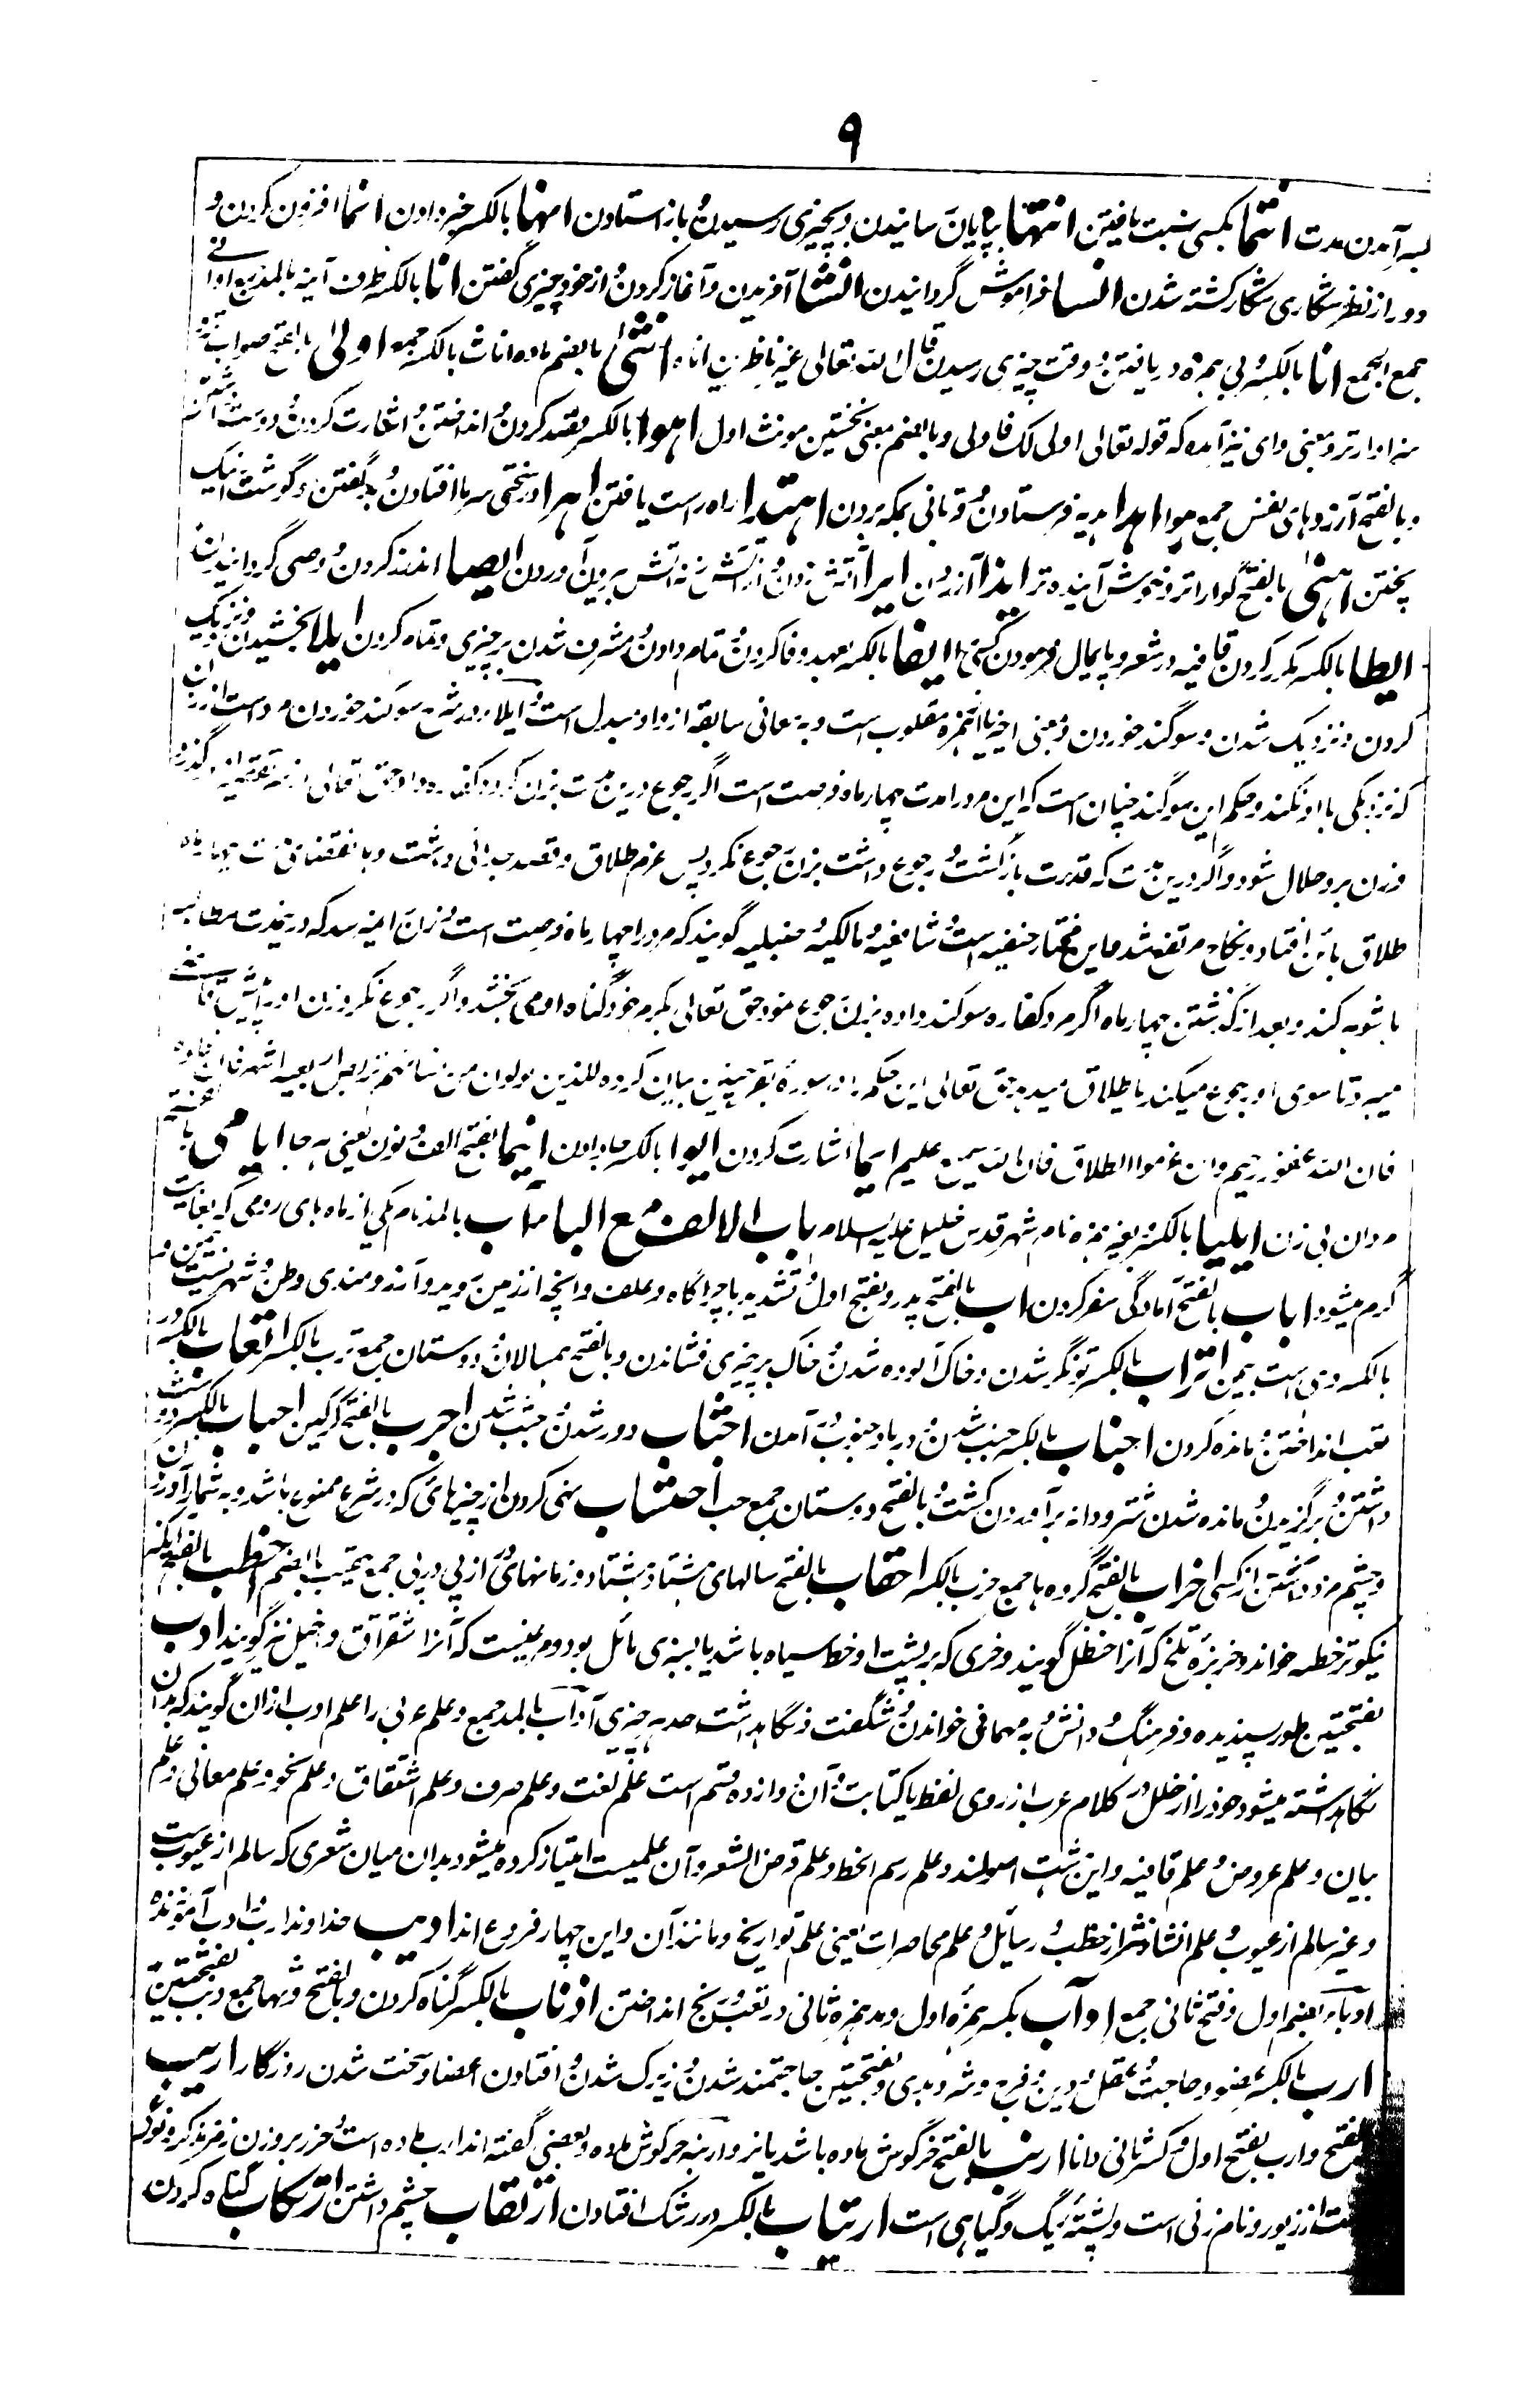 ۹
بسر آمدن مدت انتما بکسی نسبت یافتن انتها بپایان رسانیدن و بچیزی رسیدن و باز استادن انها بالکسر خبر دادن انما افزون کردن و
دور از نظر شکاری شکار کشته شدن انسا فراموش گردانیدن انشا آفریدن و آغاز کردن و از خود چیزی گفتن انا بالکسر ظرف آنیه بالمد جمع اوانی
جمع الجمع انا بالکسر و بی همزه دریافتن و وقت چیزی رسیدن قال الله تعالی غیر ناظرین اناه انثی بالضم ماده اناث بالکسر جمع اولی بالفتح صواب تر و
سزاوارتر و بمعنی وای نیز آمده که قوله تعالی اولی لک فاولی و بالضم بمعنی نخستین مونث اول اهوا بالکسر قصد کردن و انداختن و اشارت کردن و دوست داشتن
و بالفتح آرزوهای نفس جمع هوا اهدا هدیه فرستادن و قربانی بمکه بردن اهتدا راه راست یافتن اهرا در سختی سرما افتادن و بد گفتن و گوشت نیک
پختن اهنی بالفتح گواراتر و خوش آینده تر ایذا آزردن ایرا آتش زدن و از آتش زنه آتش بیرون آوردن ایصا اندرز کردن و وصی گردانیدن
ایطا بالکسر مکرر کردن قافیه در شعر و پایمال فرمودن کسی را ایفا بالکسر بعهد وفا کردن و تمام دادن و مشرف شدن بر چیزی و تمام کردن ایلا بخشیدن و نزدیک
کردن و نزدیک شدن و سوگند خوردن و بمعنی اخیر یا از همزه مقلوب است و بمعانی سابقه از واو مبدل است و ایلا در شرع سوگند خوردن مرد است از زن
که نزدیکی با او نکند و حکم این سوگند چنان است که این مرد را مدت چهار ماه فرصت است اگر رجوع درین مدت بزن کرد و کفاره داد حق تعالی از سر تقصیر او گذرد
و زن برو حلال شود و اگر درین مدت که قدرت بازگشت و رجوع داشت بزن رجوع نکرد پس عزم طلاق و قصد جدائی داشت و بانقضای مدت چهار ماه
طلاق بائن افتاد و نکاح مرتفع شد و این مختار حنفیه است و شافعیه و مالکیه و حنبلیه گویند که مرد را چهار ماه فرصت است و زن را نمیرسد که درین مدت مطالبه
با شوهر کند و بعد از گذشتن چهار ماه اگر مرد کفاره سوگند داده بزن رجوع نمود حق تعالی بکرم خود گناه او می بخشد و اگر رجوع نکرد زن او را پیش قاضی
میبرد تا بسوی او رجوع میکند یا طلاق میدهد حق تعالی این حکم را در سوره بقر چنین بیان کرده للذین یولون من نسائهم تربص اربعة اشهر فان فاءوا
فان الله غفور رحیم وان عزموا الطلاق فان الله سمیع علیم ایما اشارت کردن ایوا بالکسر جا دادن اینما بفتح الف و نون یعنی هر جا ایامی بالفتح
مردان بی زن ایلیا بالکسر بغیر همزه نام شهر قدس خلیل علیه السلام باب الالف مع البا آب بالمد نام یکی از ماه های رومی که بغایت
گرم میشود اباب بالفتح آمادگی سفر کردن اب بالفتح پدر و بفتح اول و تشدید با چراگاه و علف و آنچه از زمین روید و آرزومندی وطن و شهریست بیمن و
بالکسر دهی است بیمن اتراب بالکسر توانگر شدن و خاک آلوده شدن و خاک بر چیزی فشاندن و بالفتح همسالان و دوستان جمع ترب بالکسر اتعاب بالکسر در
تعب انداختن و مانده کردن اجناب بالکسر جنب شدن و در باد جنوب آمدن اجتناب دور شدن و جنب شدن اجرب بالفتح گرگین احباب بالکسر دوست
داشتن و برگزیدن و مانده شدن شتر و دانه برآوردن کشت و بالفتح دوستان جمع حب احتساب نهی کردن از چیزهائی که در شرع ممنوع باشد و بشمار آوردن
و چشم مزد داشتن از کسی احزاب بالفتح گروه ها جمع حزب بالکسر احقاب بالفتح سالهای هشتاد هشتاد و زمانهای دراز پی در پی جمع حقب بالضم اخطب بالفتح آنکه
نیکوتر خطبه خواند و خربزه تلخ که آنرا حنظل گویند و خری که بر پشت او خط سیاه باشد یا بسبزی مائل بود و مرغیست که آنرا شقراق و اخیل نیز گویند ادب
بفتحتین طور پسندیده و فرهنگ و دانش و بمهمانی خواندن و شگفت و نگاهداشت حد هر چیزی آداب بالمد جمع و علم عربی را علم ادب ازان گویند که بدان
نگاهداشته میشود خود را از خلل در کلام عرب از روی لفظ یا کتابت و آن دوازده قسم است علم لغت و علم صرف و علم اشتقاق و علم نحو و علم معانی و علم
بیان و علم عروض و علم قافیه و این هشت اصولند و علم رسم الخط و علم قرض الشعر و آن علمیست امتیاز کرده میشود بدان میان شعری که سالم از عیوب است
و غیر سالم از عیوب و علم انشاء نثر از خطب و رسائل و علم محاضرات یعنی علم تواریخ و مانند آن و این چهار فروع اند ادیب خداوند ادب و ادب آموزنده
ادباء بضم اول و فتح ثانی جمع ادآب بکسر همزه اول و مد همزه ثانی در تعب و رنج انداختن اذناب بالکسر گناه کردن و بالفتح دمها جمع ذنب بفتحتین
ارب بالکسر عضو و حاجت و عقل و دین و فرج و شر و بدی و بفتحتین حاجتمند شدن و زیرک شدن و افتادن اعضا و سخت شدن روزگار اریب
بالفتح وارب بفتح اول و کسر ثانی دانا ارنب بالفتح خرگوش ماده باشد یا نر و ارنبه خرگوش ماده و بعضی گفته اند ارنب ماده است و خزر بر وزن زفر مذکر و نوعی
است از زیور و نام زنی است و پشته ریگ و گیاهی است ارتیاب بالکسر در شک افتادن ارتقاب چشم داشتن ارتکاب گناه کردن